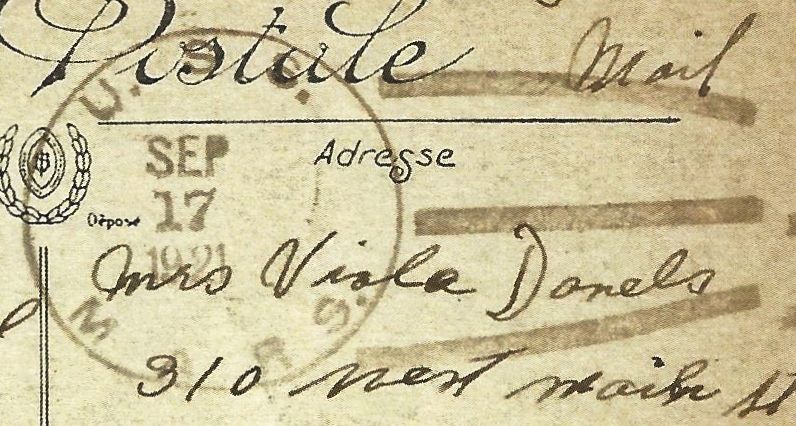 Postale Mail
U. S. S.
SEP
17
1921
M A R S.
Adresse
Déposé
Mrs Viola Danels
310 West Main St